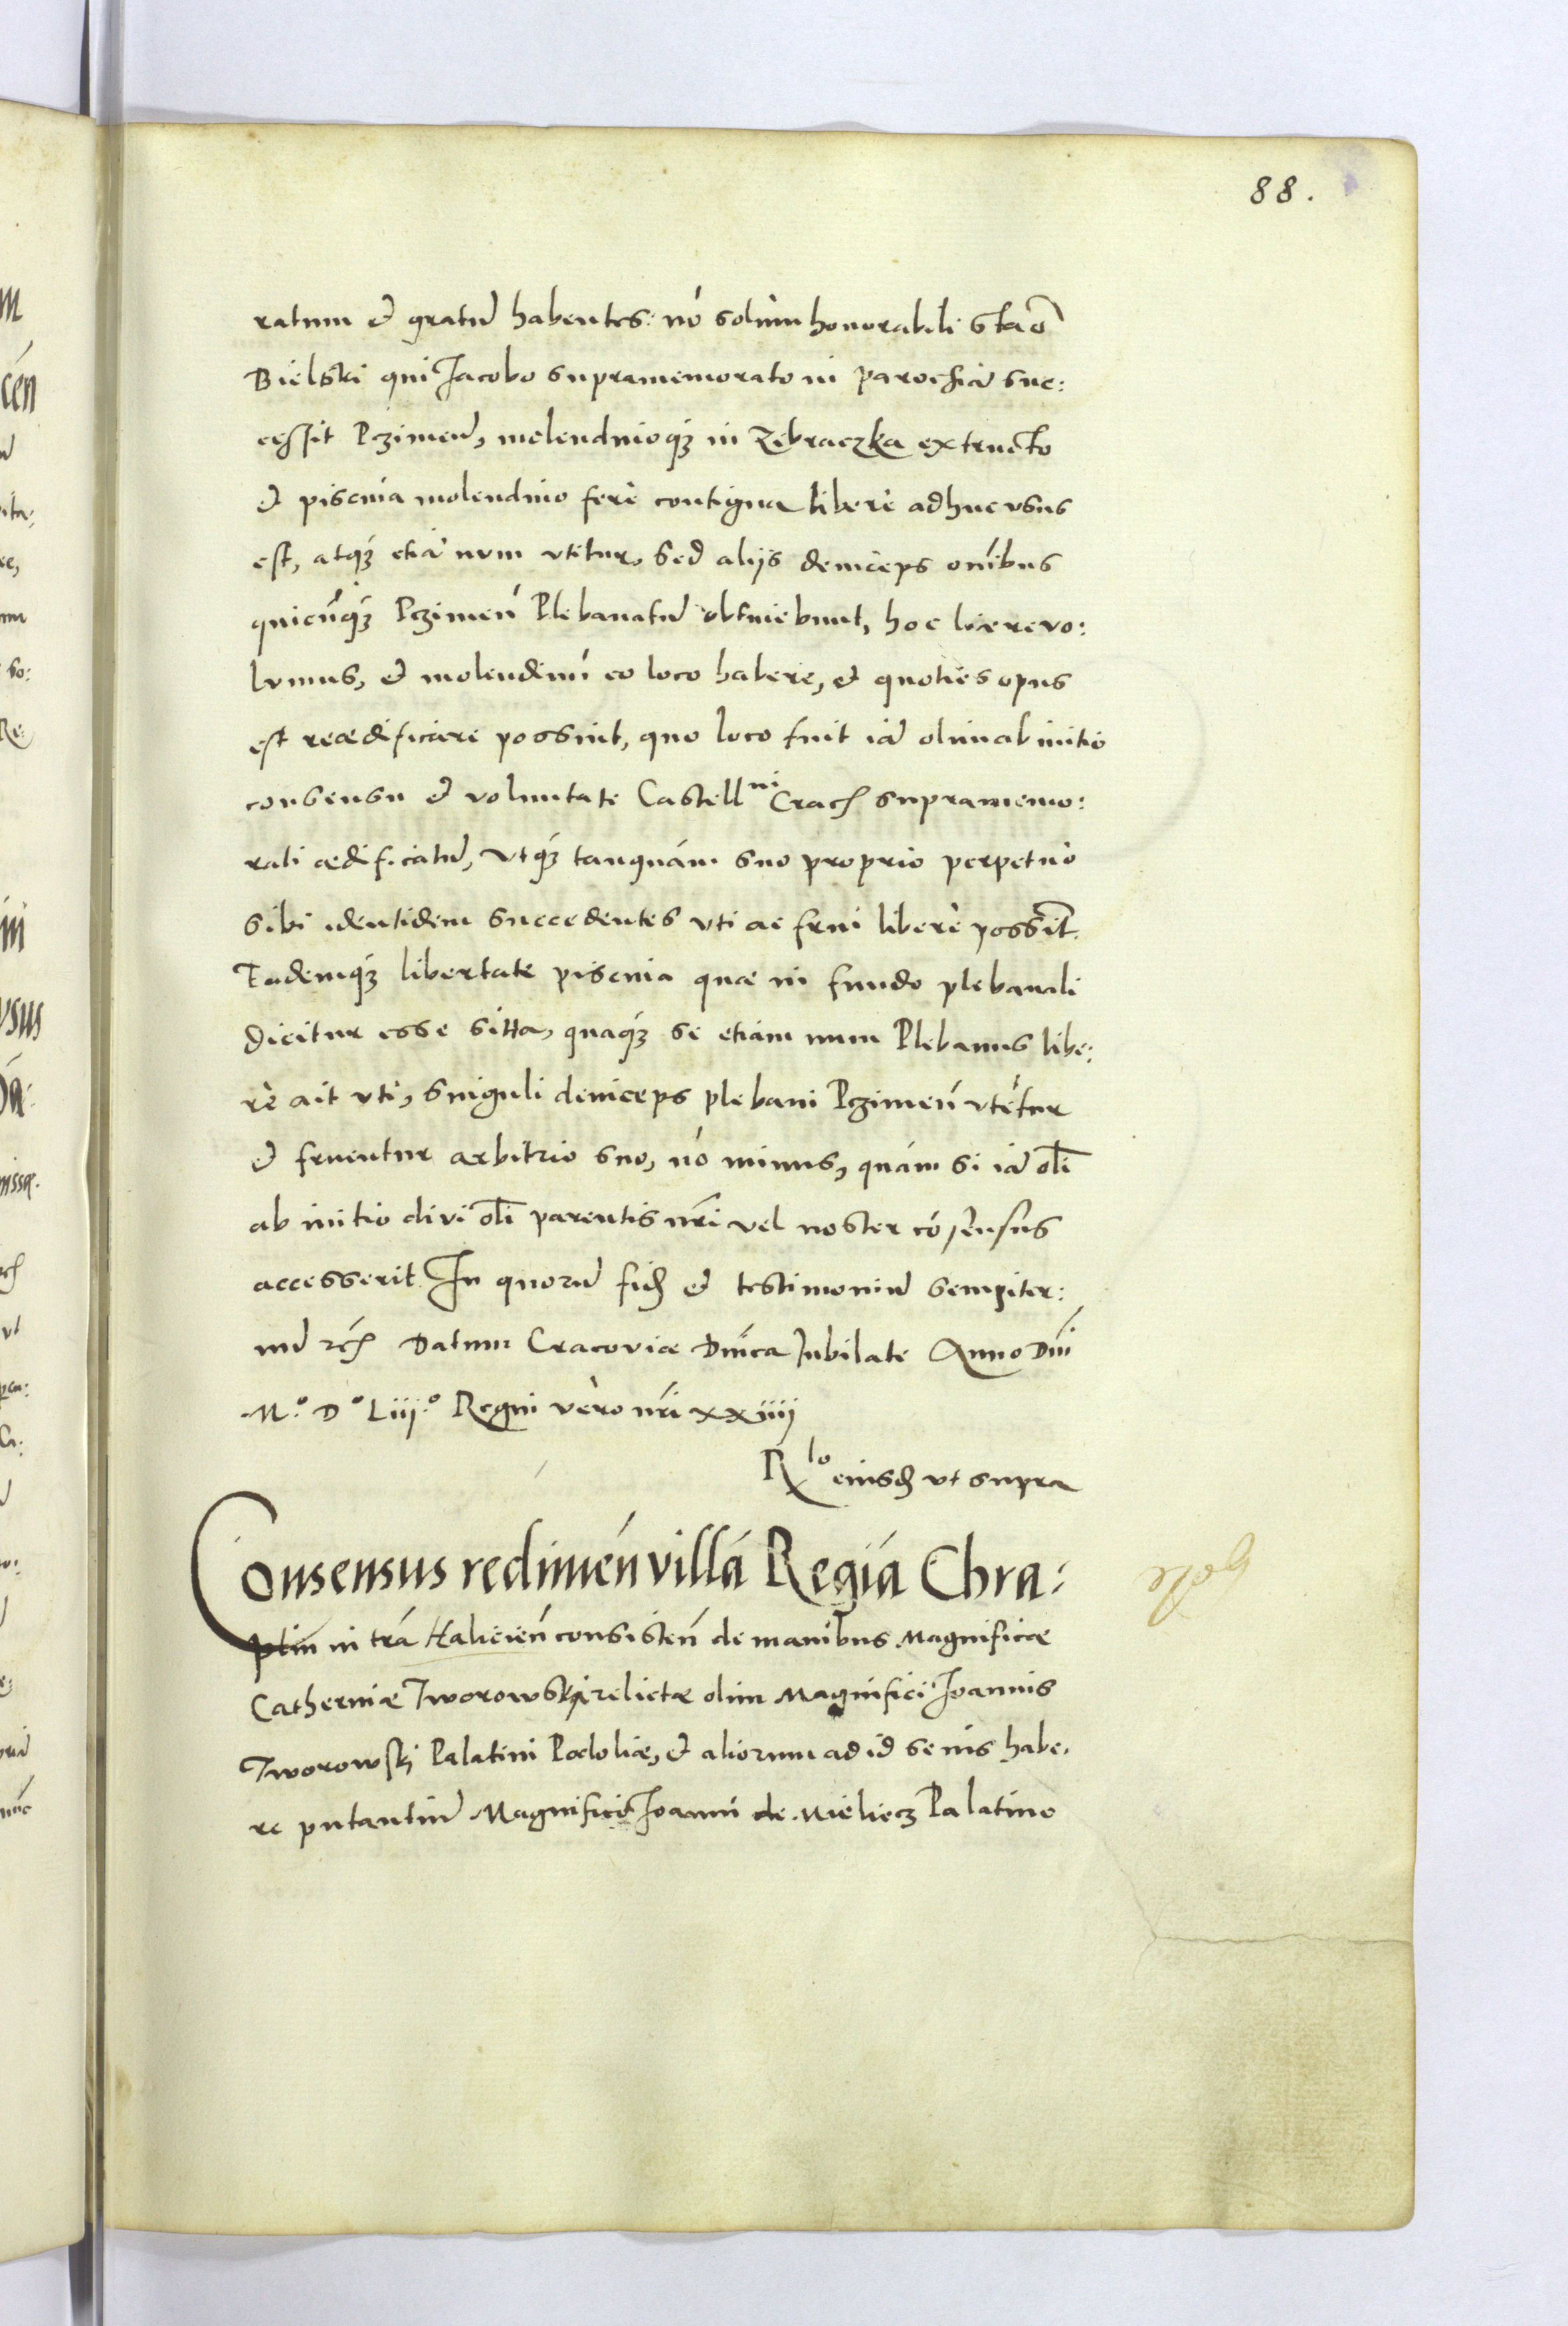 88.
ratum et gratū habentes: nō solùm honorabili Stão
Bielski qui Iacobo supramemorato in parochiā suc:
cessit Pczimeń, molendinoq3 in Zebraczka extructo
et piscina molendino ferè contigua liberè adhuc vsus
est, atq3 etiā num vtitur, sed alijs deinceps oñibus
quicūq3 Pczimeń Plebanatū obtinebunt, hoc licere vo:
lumus, et molendinū eo loco habere, et quoties opus
est reædificare possint, quo loco fuit iā olim ab initio
consensu et voluntate Castellni Crach supramemo:
rati ædificatū, vtq3 tanquàm suo proprio perpetuò
sibi identidem succedentes vti ac frui liberè possint.
Eademq3 libertate piscina quæ in fundo plebanali
dicitur esse sitta, quaq3 se etiam num Plebanus libe:
rè ait vti, singuli deinceps plebani Pczimeń vtētur
et fruentur arbitrio suo, nō minus, quàm si iā olī
ab initio divi olī parentis nrī vel noster cōsensus
accesserit. In quorū fidē et testimoniū sempiter:
nū rch Datum Cracoviæ Dnīca Iubilate Anno Dnī
M.o D.o Liij.o Regni vero nrī xxiiij
Rlo eiusdē vt supra
Consensus redimeń villā Regiā Chra:
plin in trā Halicień consisteń de manibus Magnificæ
Catherinæ Tworowskij relictæ olim Magnifici Ioannis
Tworowski Palatini Podoliæ, et aliorum ad id se ius habe:
re putantiū Magnifico Ioanni de Mieliecz Palatino